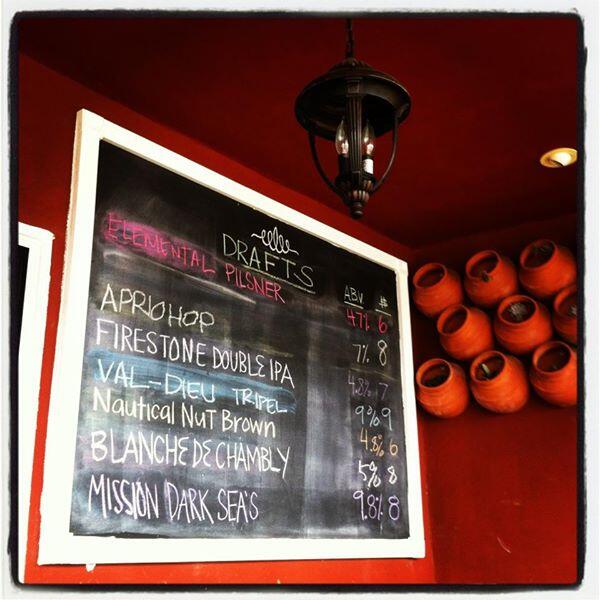 DRAFTS ABV #
ELEMENTAL PILSNER 4.7% 6
APRIOHOP 7% 8
FIRESTONE DOUBLE IPA 4.8% 7
VAL-DIEU TRIPEL 9% 9
Nautical Nut Brown 4.8% 6
BLANCHE DE CHAMBLY 5% 8
MISSION DARK SEA'S 9.8% 8